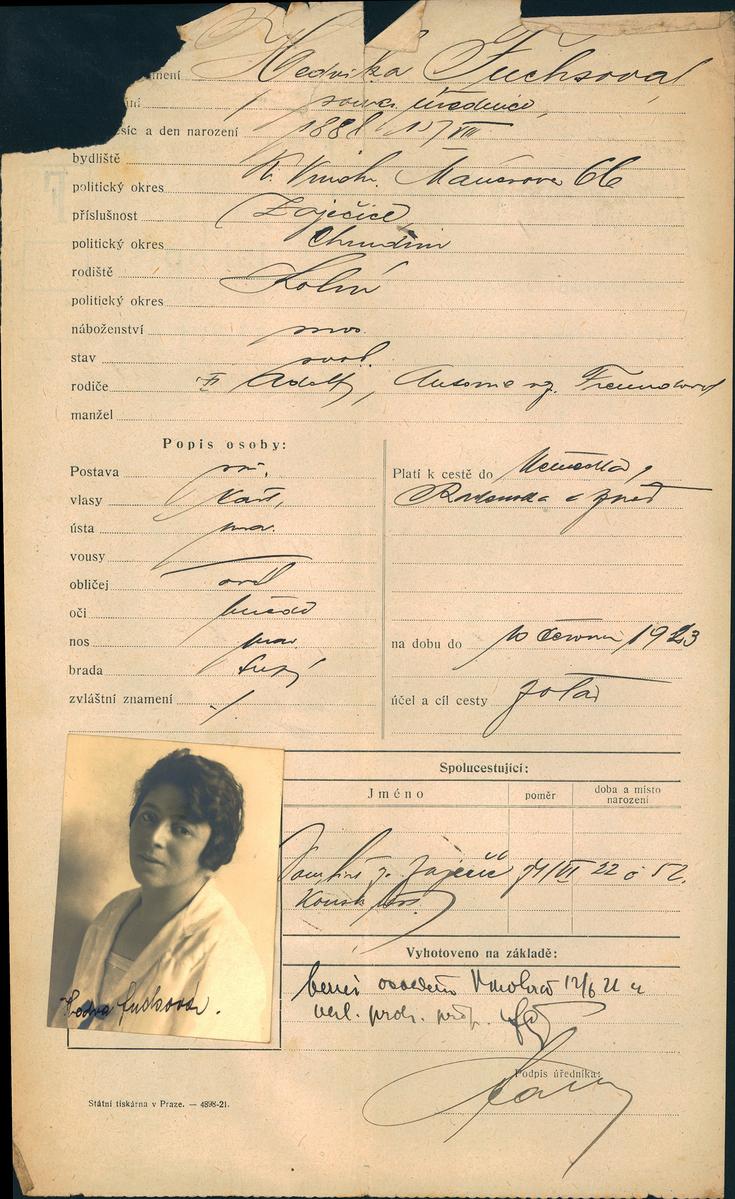 Hedvika Fuchsová
soukr. úřednice,
síc a den narození 1888 15/VII
bydliště K. Vinohr. Mánesova 66
politický okres
příslušnost Zaječice
politický okres Chrudim
rodiště Kolín
politický okres
náboženství mos.
stav svob.
rodiče Adolf, Antonie roz. Freundová
manžel
Popis osoby:
Postava stř.
vlasy kašt.
ústa pra.
vousy
obličej ovál
oči hnědé
nos prav.
brada
zvláštní znamení ./.
Platí k cestě do Německa,
Rakouska a zpět
na dobu do 10 června 1923
účel a cíl cesty
Spolucestující:
Jméno poměr doba a místo narození
Dom. list Zaječic VI 22 č 52.
Vyhotoveno na základě:
12/6 22
Hedva Fuchsová.
Podpis úředníka:
Státní tiskárna v Praze. — 4898-21.